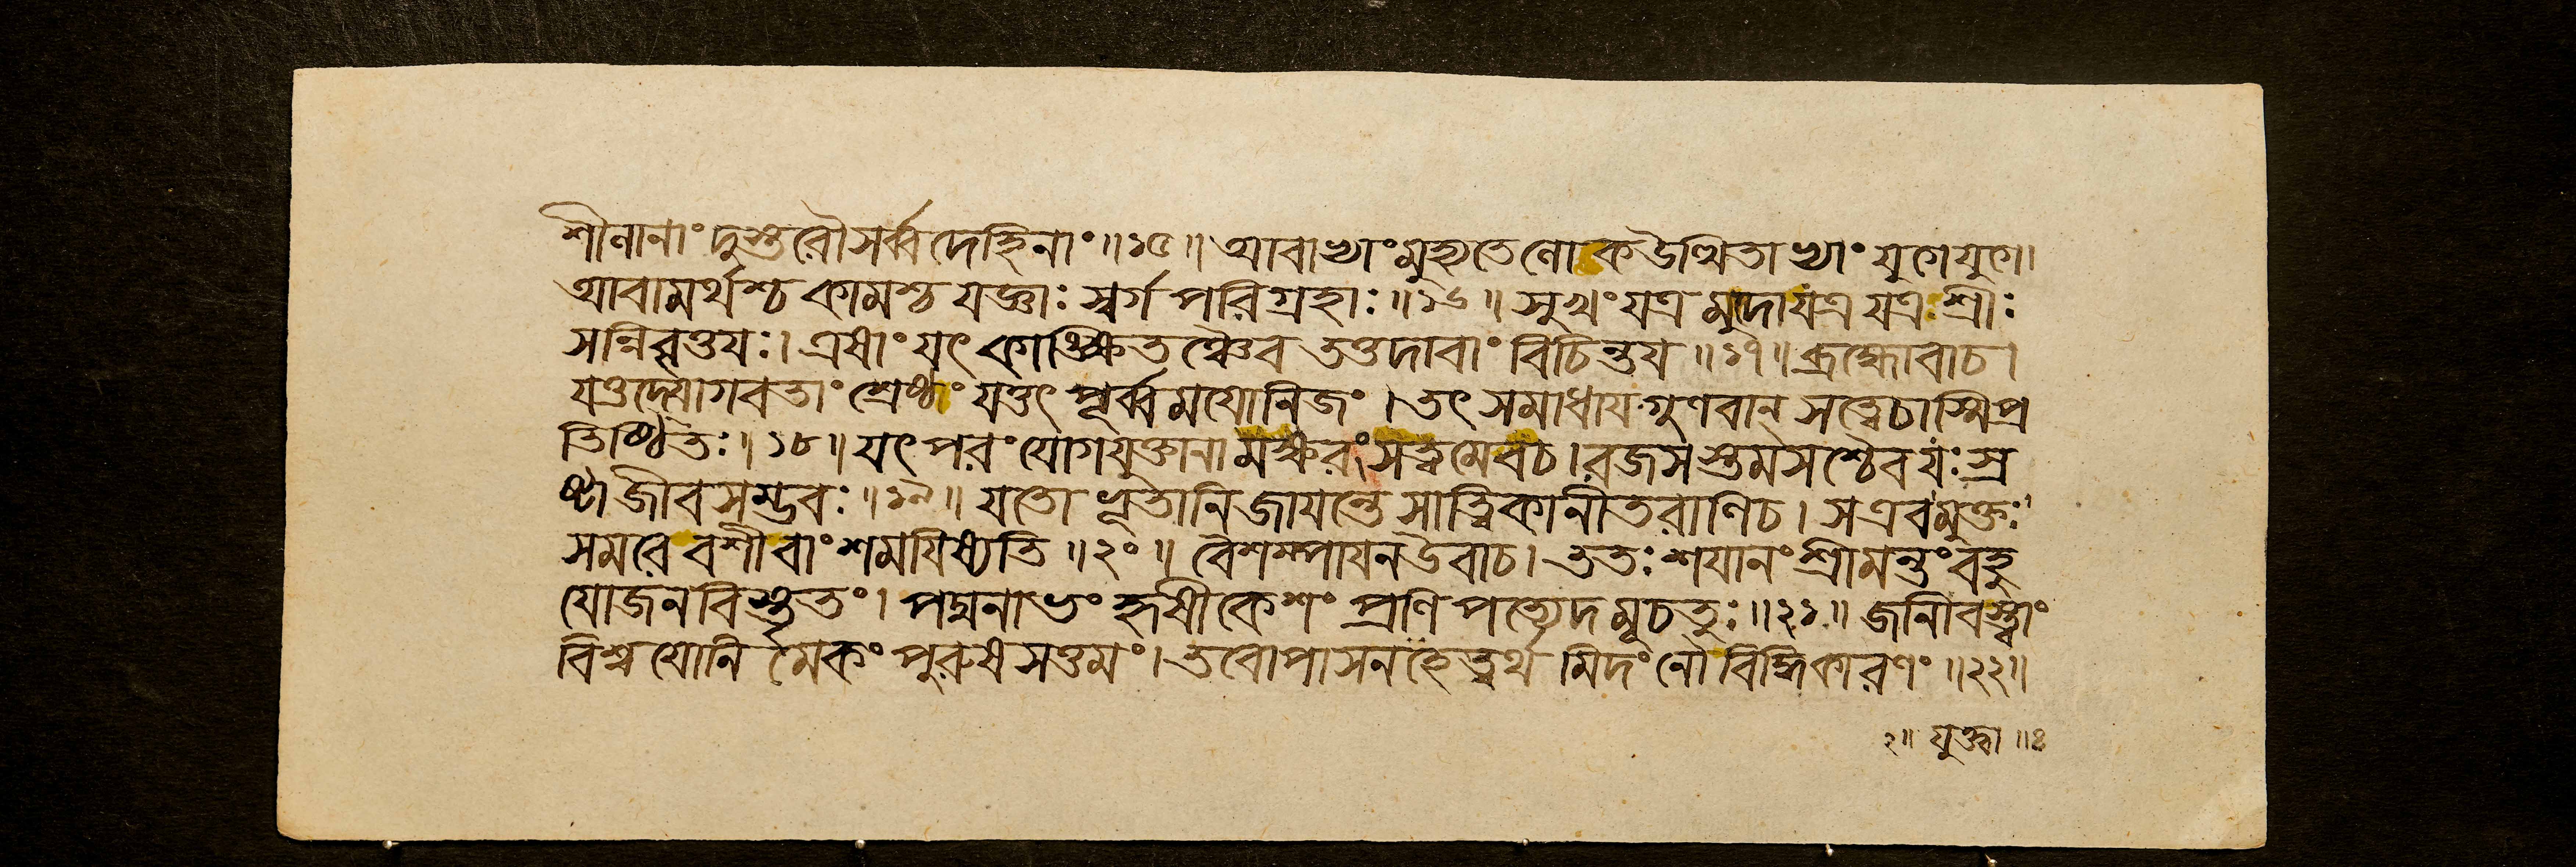 শীলানাং দুস্তরৌ সর্ব্বদেহিনাং ॥ ১৫ ॥ আবাভ্যাং মুহ্যতে লোক উত্থিতাভ্যাং যুগে যুগে।
আবামর্থশ্চ কামশ্চ যজ্ঞাঃ স্বর্গপরিগ্রহাঃ ॥ ১৬ ॥ সুখং যত্র মুদো যত্র যত্র শ্রীঃ
সন্নিবৃত্তয়ঃ। এষাং যৎ কাঙ্ক্ষিতঞ্চৈব তত্তদাবাং বিচিন্তয় ॥ ১৭ ॥ ব্রহ্মোবাচ।
যত্তদ্যোগবতাং শ্রেষ্ঠং যত্তৎ পূর্ব্বময়োনিজং। তৎ সমাধায় গুণবান্ সত্ত্বে চাস্মি প্র
তিষ্ঠিতঃ ॥ ১৮ ॥ যৎ পরং যোগযুক্তানামক্ষরং সত্ত্বমেব চ। রজসস্তমসশ্চৈব যঃ স্র
ষ্টা জীবসম্ভবঃ ॥ ১৯ ॥ যতো ভূতানি জায়ন্তে সাত্ত্বিকানীতরাণি চ। স এবমুক্তঃ
সমরে বশী বাং শময়িষ্যতি ॥ ২০ ॥ বৈশম্পায়ন উবাচ। ততঃ শয়ানং শ্রীমন্তং বহু
যোজনবিস্তৃতং। পদ্মনাভং হৃষীকেশং প্রণিপত্যেদমূচতুঃ ॥ ২১ ॥ জানীবস্ত্বাং
বিশ্বযোনিমেকং পুরুষসত্তমং। তবোপাসনহেত্বর্থমিদং নৌ বিদ্ধি কারণং ॥ ২২ ॥
২ ॥ যুক্তা ॥ ৪